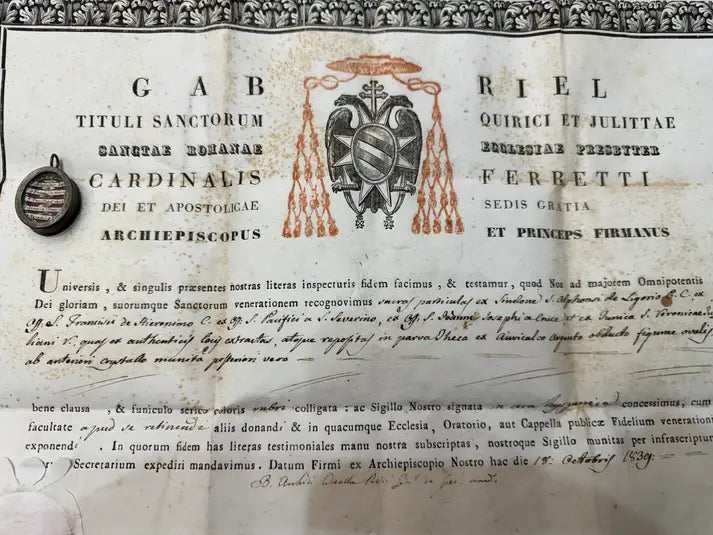 GABRIEL
TITULI SANCTORUM QUIRICI ET JULITTAE
SANCTAE ROMANAE ECCLESIAE PRESBYTER
CARDINALIS FERRETTI
DEI ET APOSTOLICAE SEDIS GRATIA
ARCHIEPISCOPUS ET PRINCEPS FIRMANUS
Universis, & singulis præsentes nostras literas inspecturis fidem facimus, & testamur, quod Nos ad majorem Omnipotentis
Dei gloriam, suorumque Sanctorum venerationem recognovimus sacras particulas ex Sindone S. Alphonsi de Ligorio E. C. ex
Oss. S. Francisci de Hieronimo C. ex Oss. S. Pacifici a S. Severino, ex Oss. S. Joann. Josephi a Cruce et ex Tunica S. Veronicae Ju
liani V. quas ex authenticis locis extractas, atque repositas in parva theca ex Auricalco argento obducto figurae ovalis
ab anteriori crystallo munita posteriori vero
bene clausa, & funiculo serico coloris rubri colligata: ac Sigillo Nostro signata in cera concessimus, cum
facultate apud se retinendi aliis donandi & in quacumque Ecclesia, Oratorio, aut Cappella publicæ Fidelium venerationi
exponendi. In quorum fidem has literas testimoniales manu nostra subscriptas, nostroque Sigillo munitas per infrascriptum
Secretarium expediri mandavimus. Datum Firmi ex Archiepiscopio Nostro hac die 18 Octobris 1839